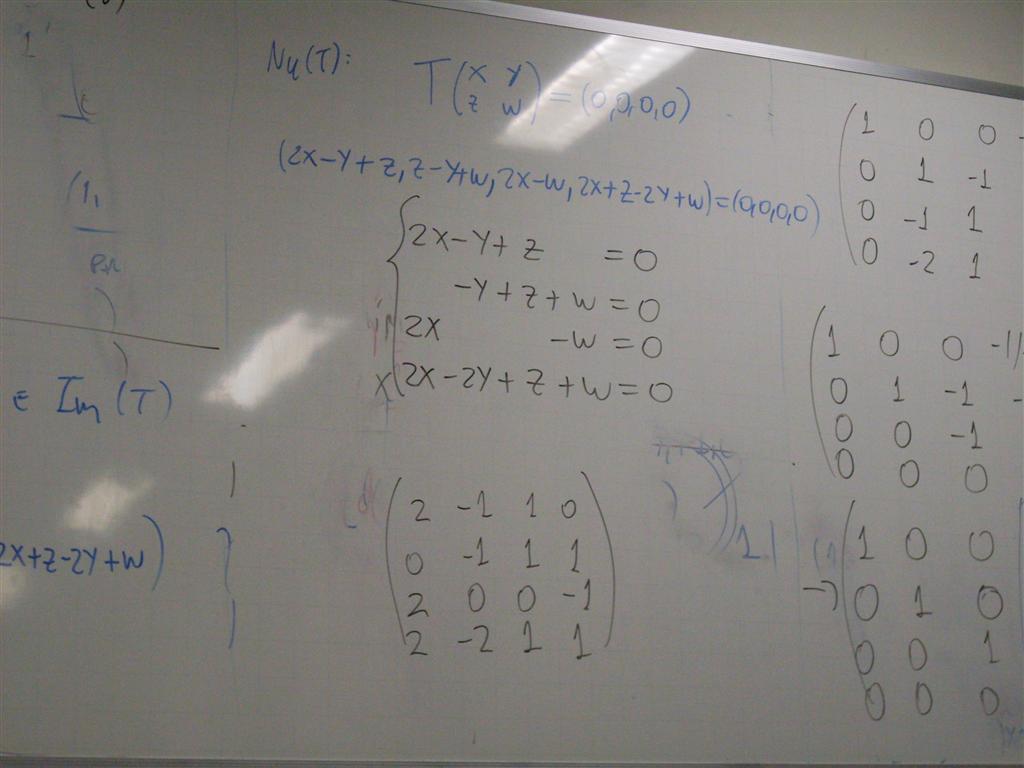 ∈ Im(T)
2X+Z-2Y+W)
Nu(T):
T(X Y
Z W) = (0,0,0,0)
(2X-Y+Z, Z-Y+W, 2X-W, 2X+Z-2Y+W)=(0,0,0,0)
2X-Y+Z =0
-Y+Z+W=0
2X -W=0
2X-2Y+Z+W=0
2 -1 1 0
0 -1 1 1
2 0 0 -1
2 -2 1 1
1 0 0
0 1 -1
0 -1 1
0 -2 1
1 0 0 -1/
0 1 -1 -
0 0 -1
0 0 0
1 0 0
0 1 0
0 0 1
0 0 0